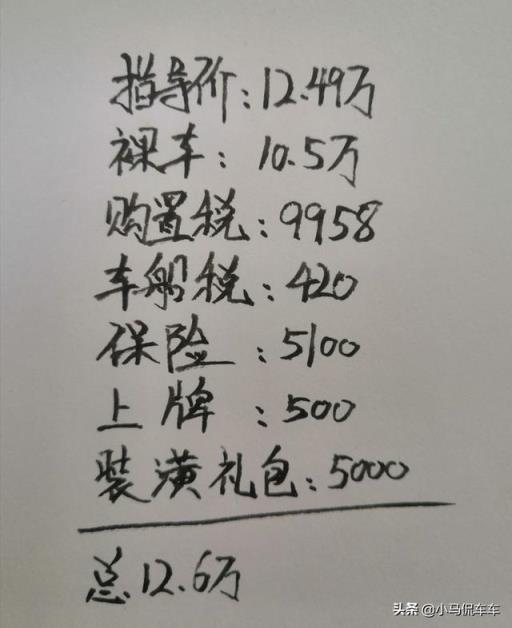 指导价:12.49万
裸车:10.5万
购置税:9958
车船税:420
保险:5100
上牌:500
装潢礼包:5000
总12.6万
头条 @小马侃车车